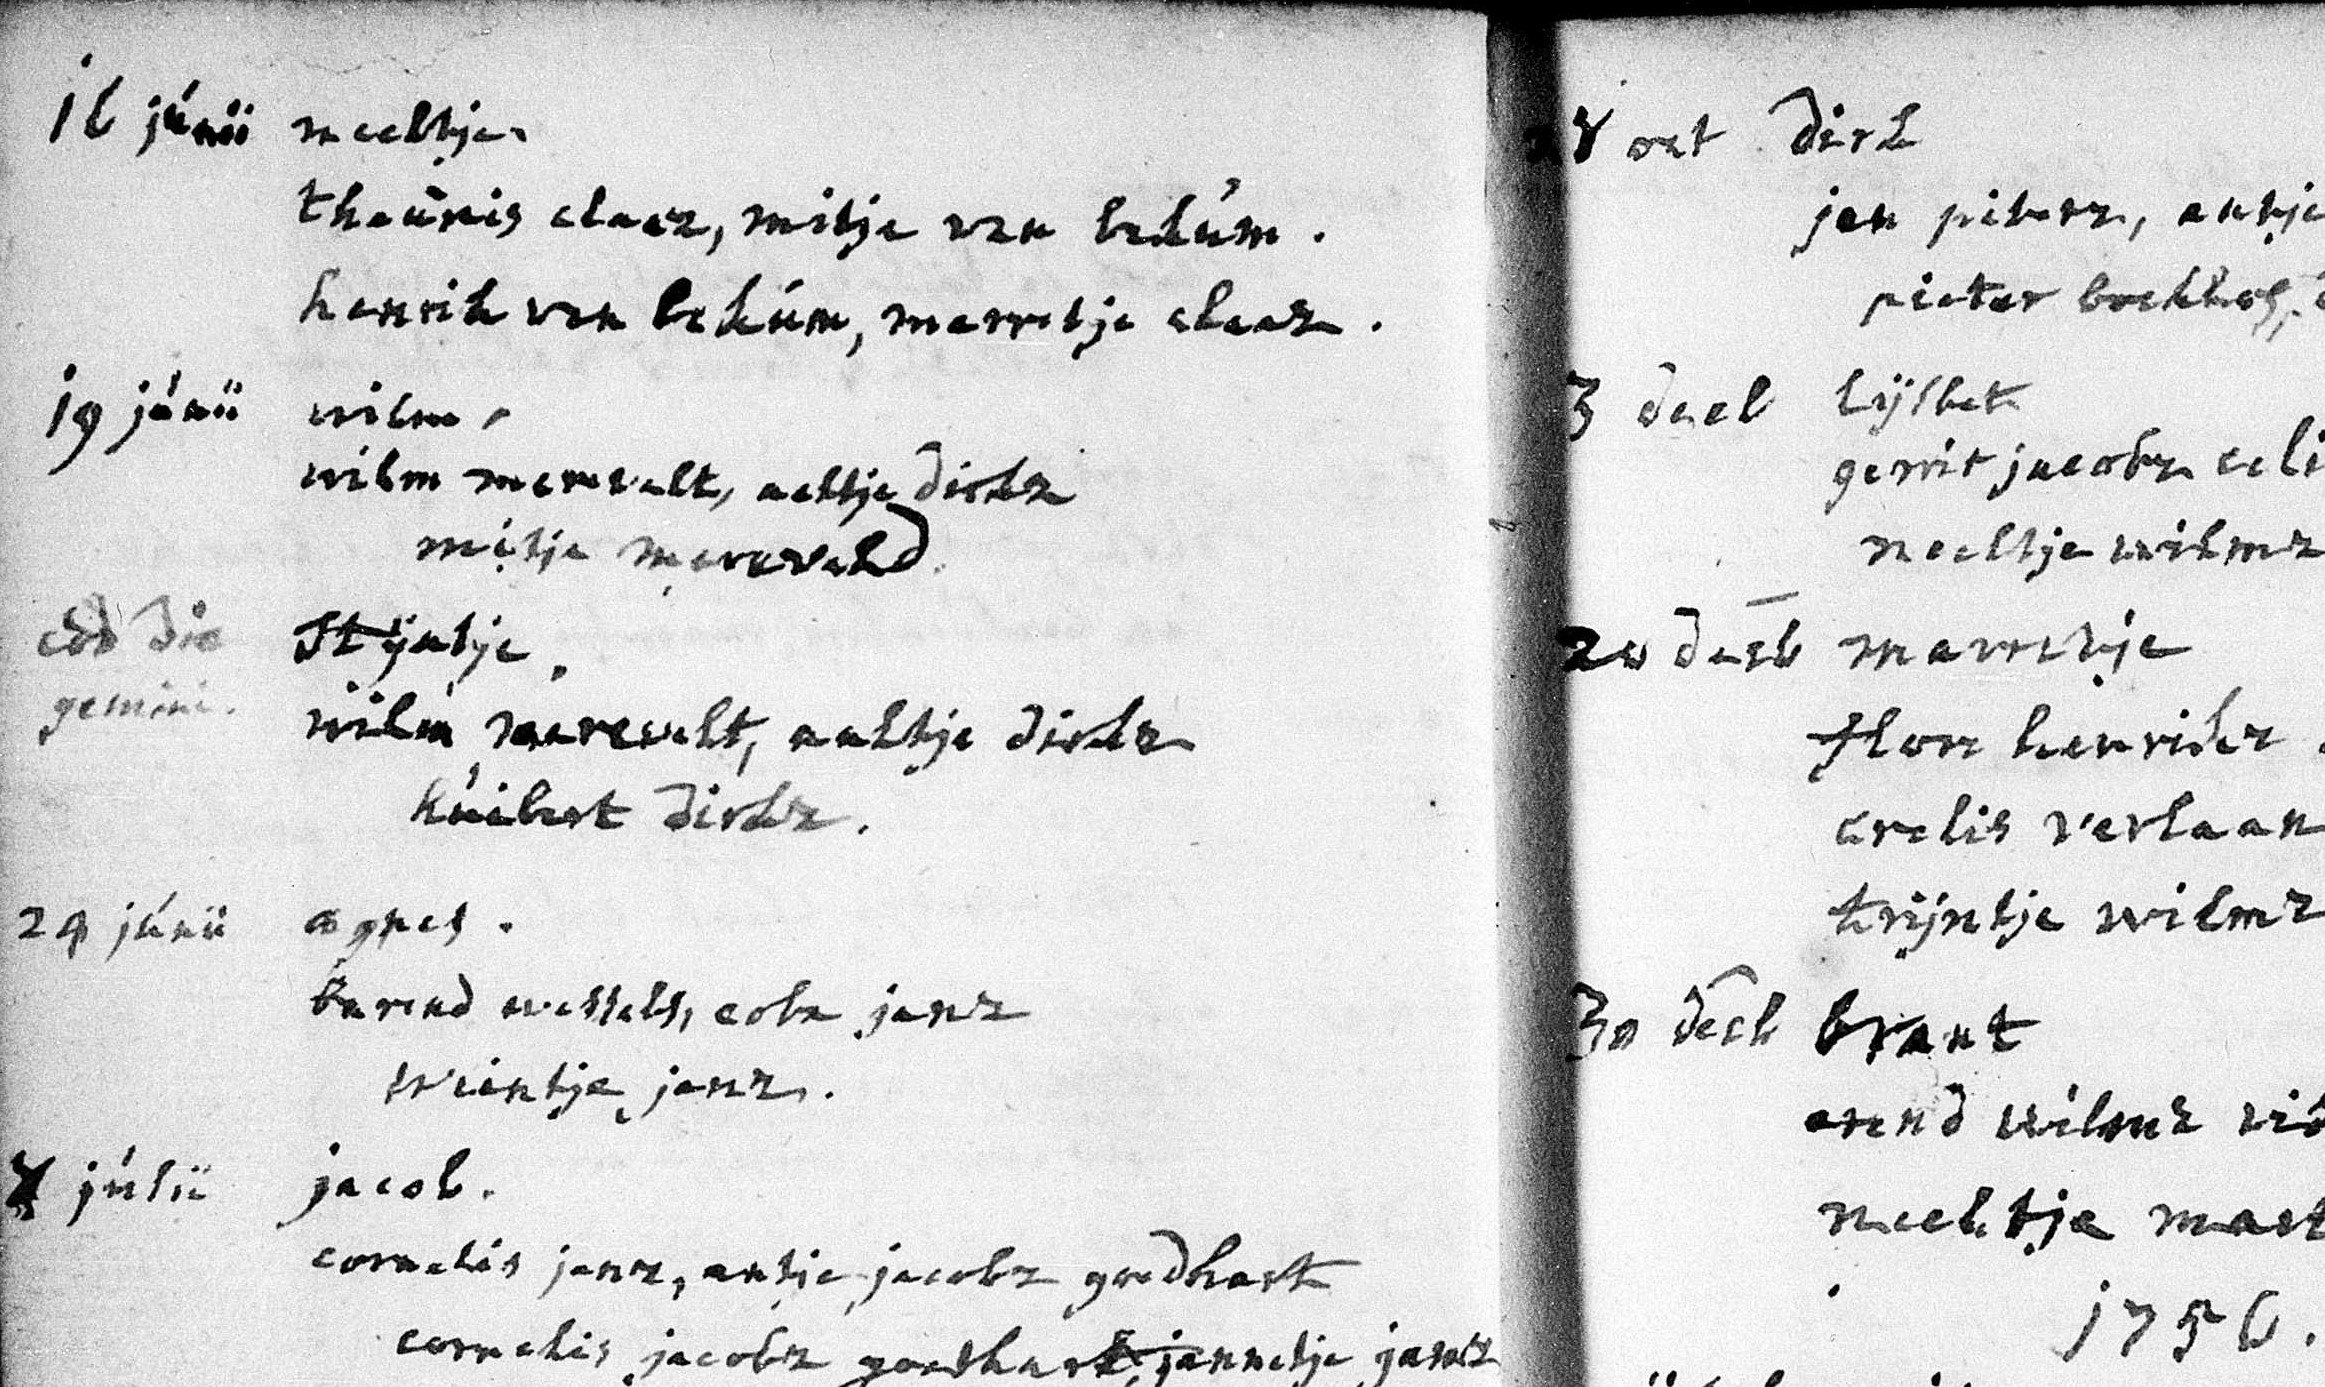 16 júnii neeltje.
theunis claaz, mitje van bekúm.
henrik van bekúm, marretje claaz.
19 júnii wilm.
wilm merevelt, aeltje dirkz
mitje mereveld.
eod die stijntje.
gemini. wilm merevelt, aaltje dirkz
húibert dirkz.
29 júnii agnes.
barend wessels, coba janz
wientje janz.
7 júlii jacob.
cornelis janz, antje jacobz goedhart
cornelis jacobz goedhart, jannetje janz
8 oct dirk
jan pieterz, antje
pieter
3 decb lijsbet
gerrit jacobz
neeltje wilmz
20 decb marretje
flore henrikz
crelis verlaan
trijntje wilmz
30 decb brant
arend wilmz
neeltje
1756.